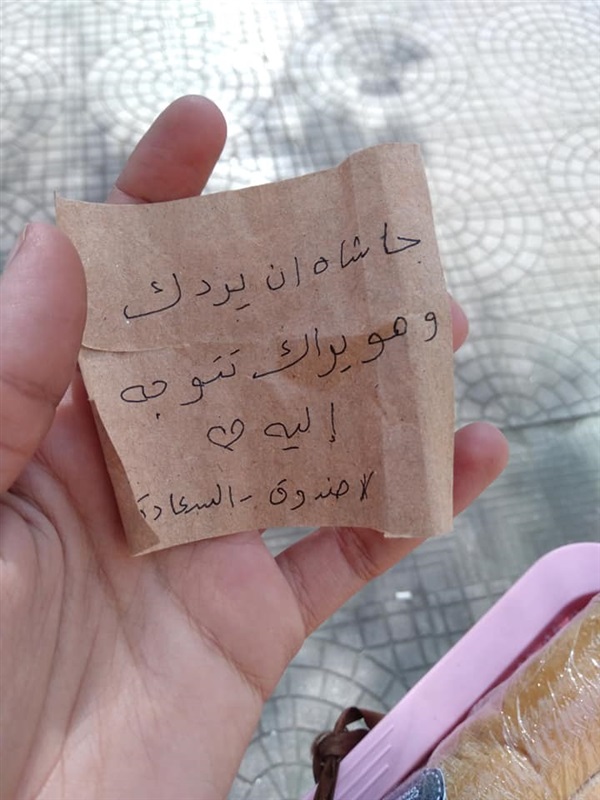 حاشاه ان يردك
وهو يراك تتوجه
إليه ♡
لا صندوق - السعادة